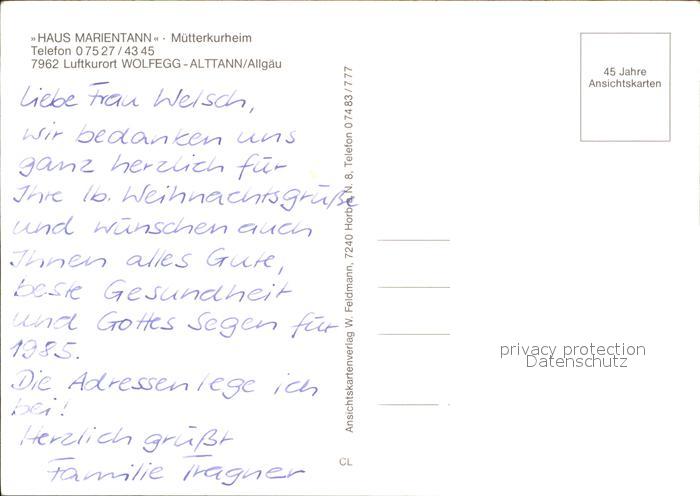 »HAUS MARIENTANN« · Mütterkurheim
Telefon 0 75 27 / 43 45
7962 Luftkurort WOLFEGG - ALTTANN/Allgäu
Liebe Frau Welsch,
wir bedanken uns
ganz herzlich für
Ihre lb. Weihnachtsgrüße
und wünschen auch
Ihnen alles Gute,
beste Gesundheit
und Gottes Segen für
1985.
Die Adressen lege ich
bei!
Herzlich grüßt
Familie Tragner
Ansichtskartenverlag W. Feldmann, 7240 Horb a. N. 8, Telefon 0 74 83 / 7 77
CL
45 Jahre
Ansichtskarten
privacy protection
Datenschutz